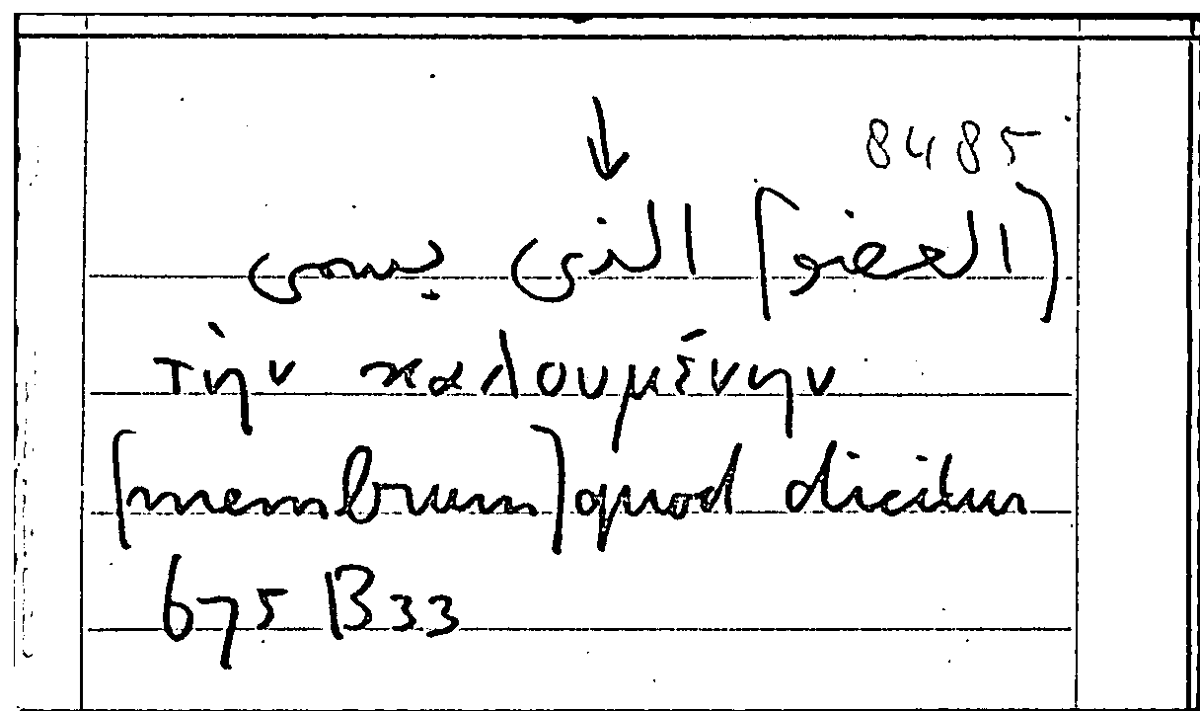 8485
(العضو) الذى يسمى
τὴν καλουμένην
(membrum) quod dicitur
675 B33